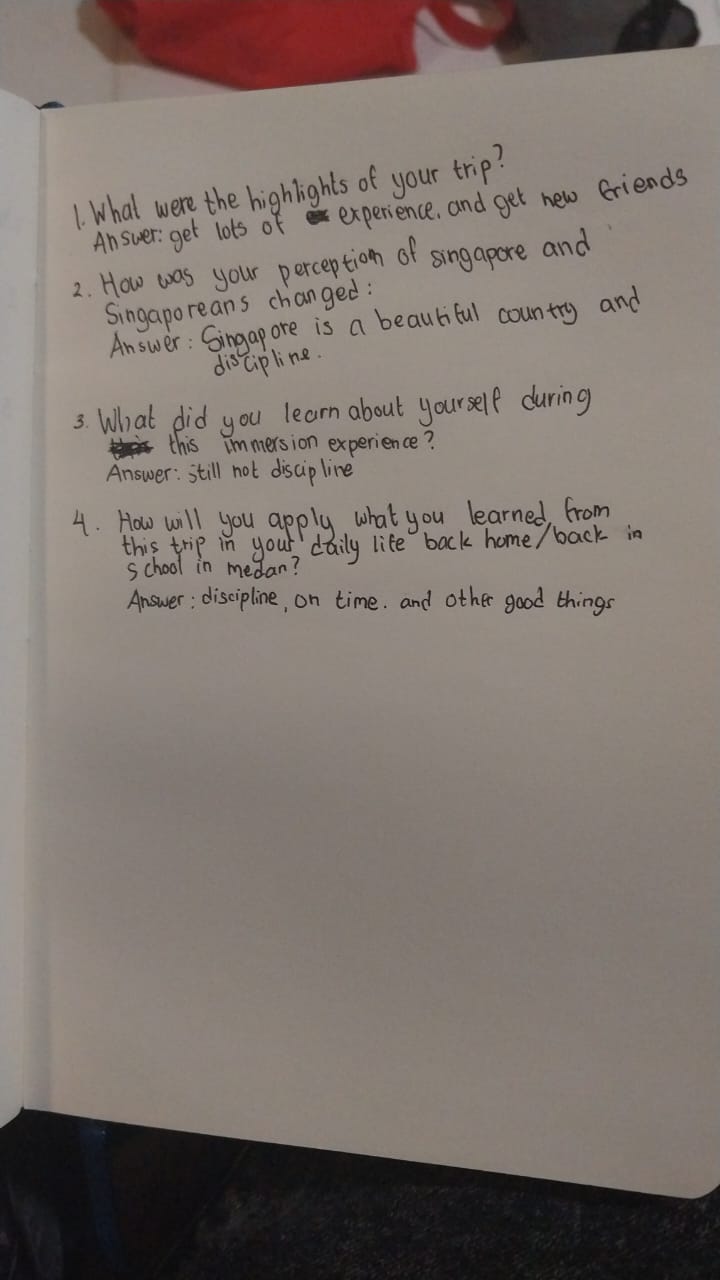 1. What were the highlights of your trip?
Answer: get lots of experience. and get new friends
2. How was your perception of singapore and
Singaporeans changed:
Answer: Singapore is a beautiful country and
discipline.
3. What did you learn about yourself during
this immersion experience?
Answer: still not discipline
4. How will you apply what you learned from
this trip in your daily life back home/back in
school in medan?
Answer: discipline, on time. and other good things